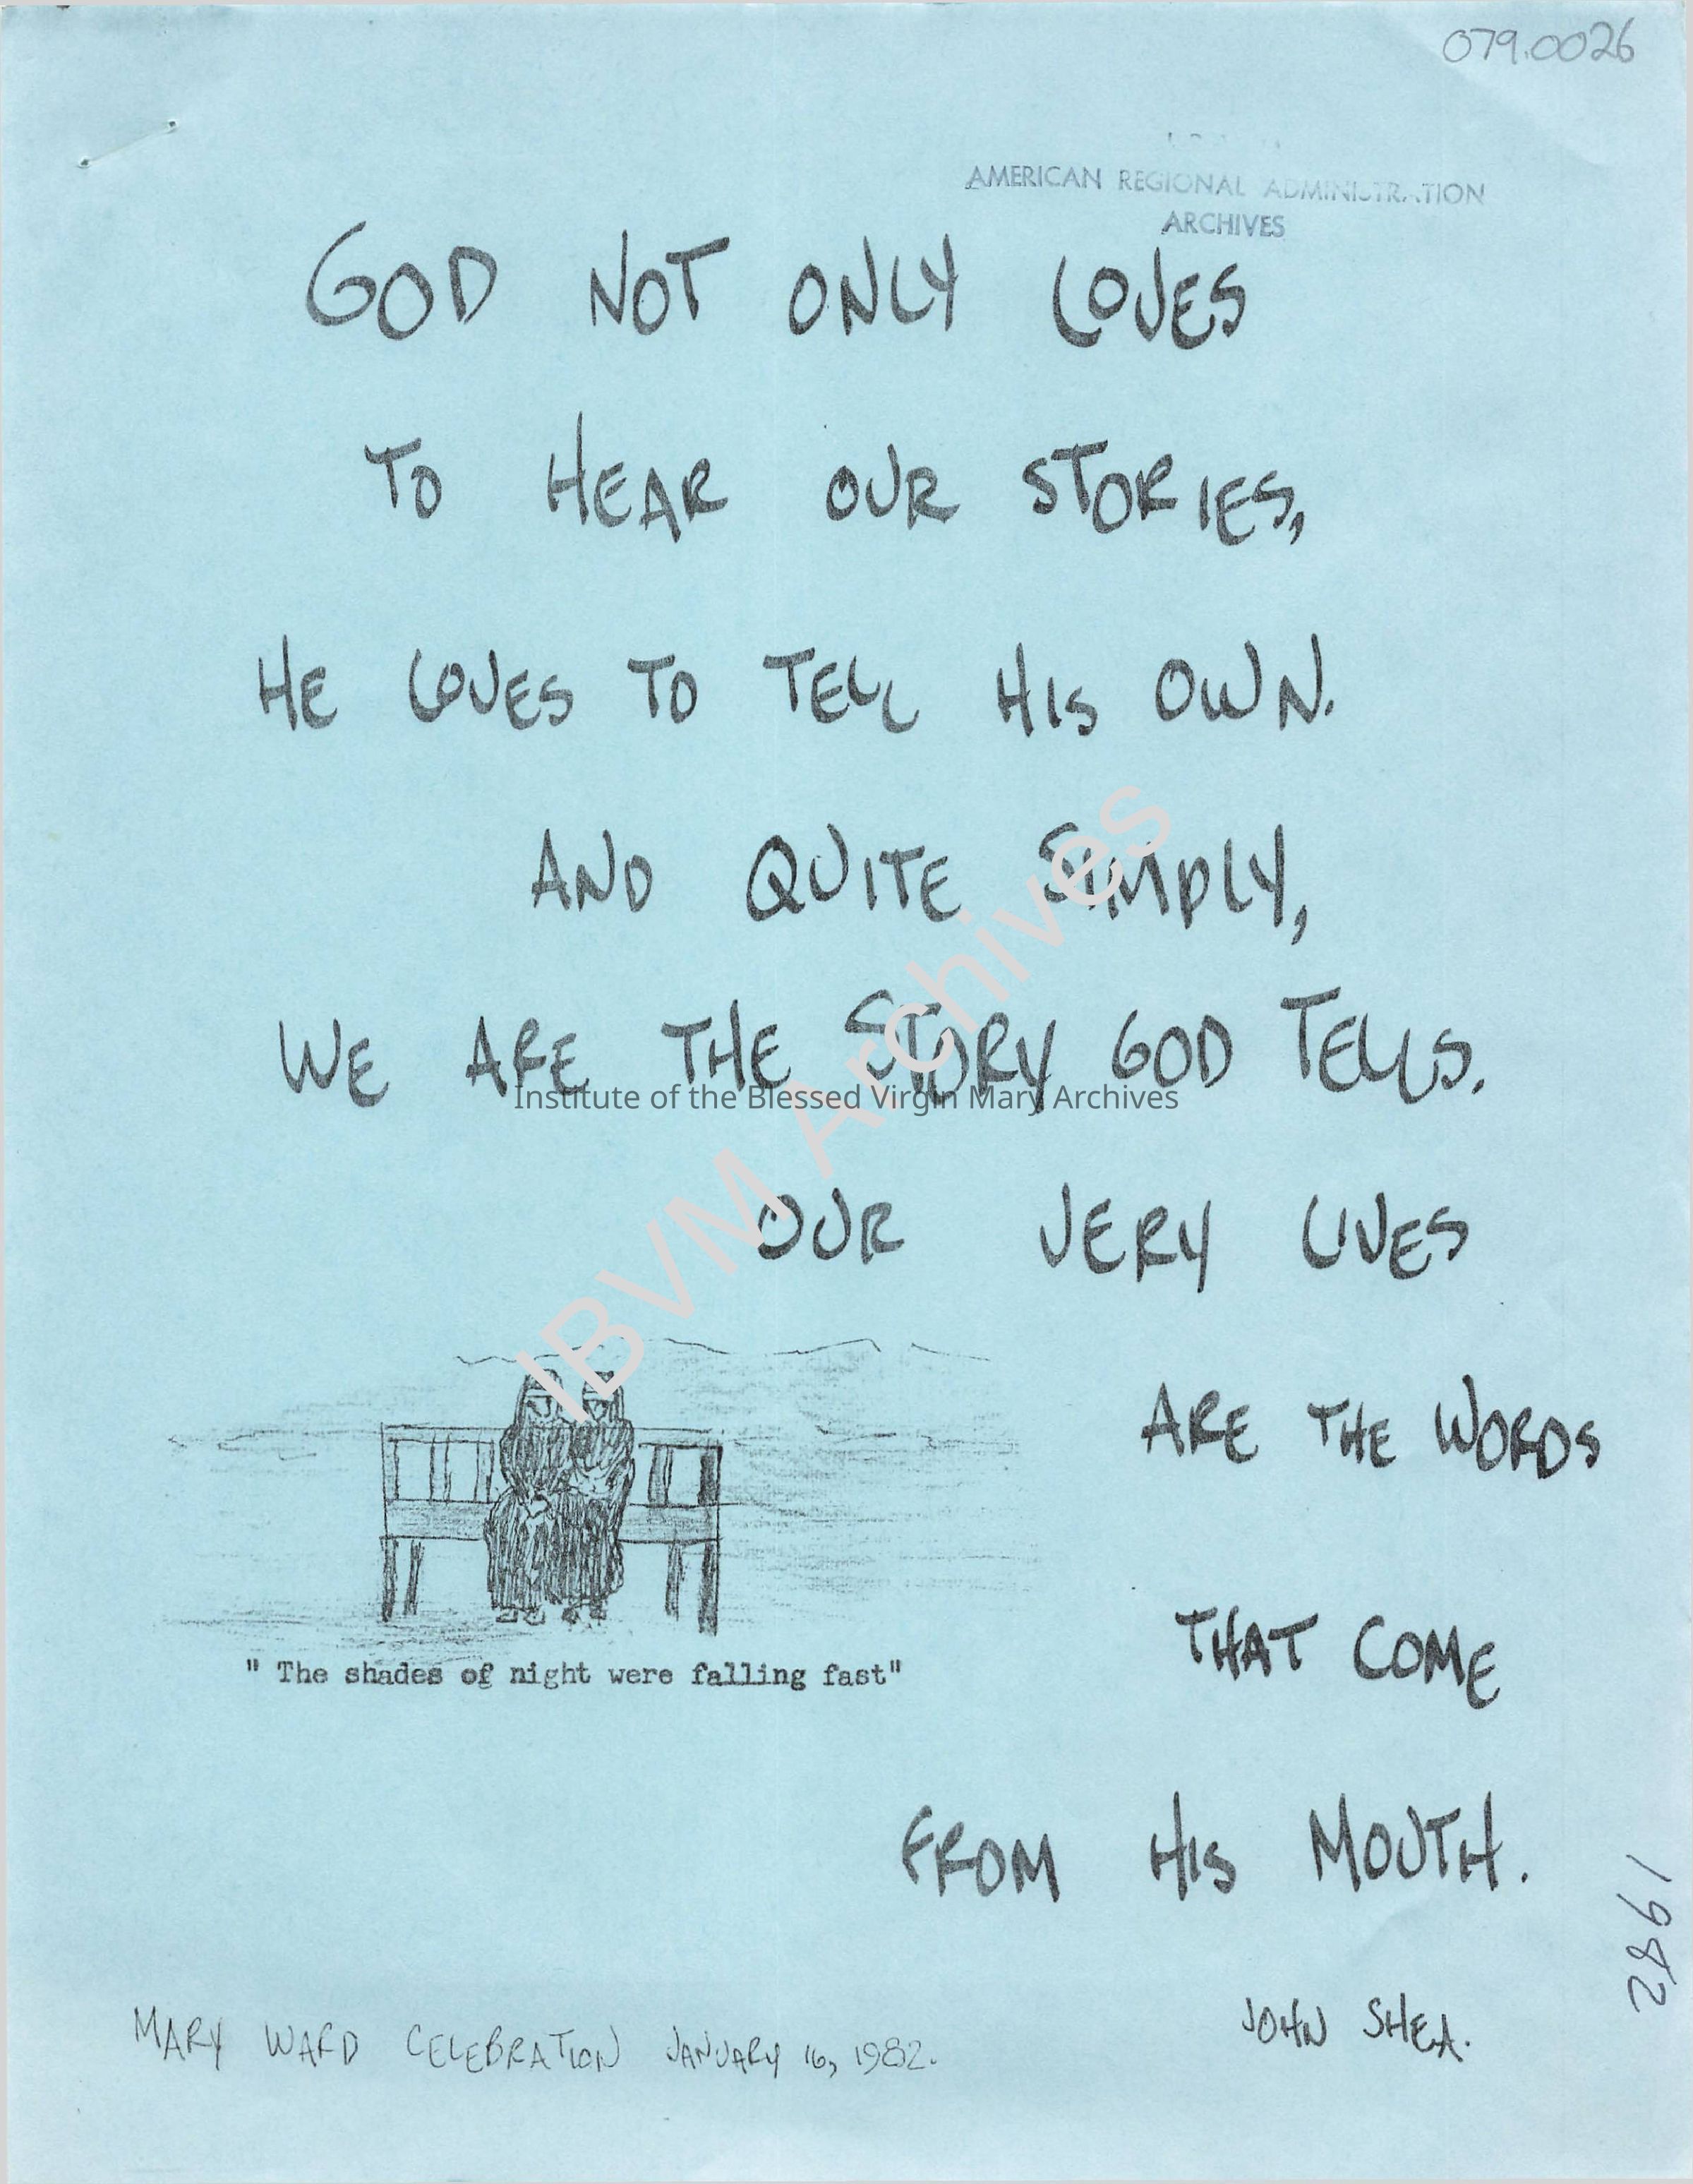 079.0026
AMERICAN REGIONAL ADMINISTRATION
ARCHIVES
GOD NOT ONLY LOVES
TO HEAR OUR STORIES,
HE LOVES TO TELL HIS OWN.
AND QUITE SIMPLY,
WE ARE THE STORY GOD TELLS.
Institute of the Blessed Virgin Mary Archives
IBVM Archives
OUR VERY LIVES
ARE THE WORDS
THAT COME
" The shades of night were falling fast"
FROM HIS MOUTH.
1982
JOHN SHEA.
MARY WARD CELEBRATION JANUARY 16, 1982.